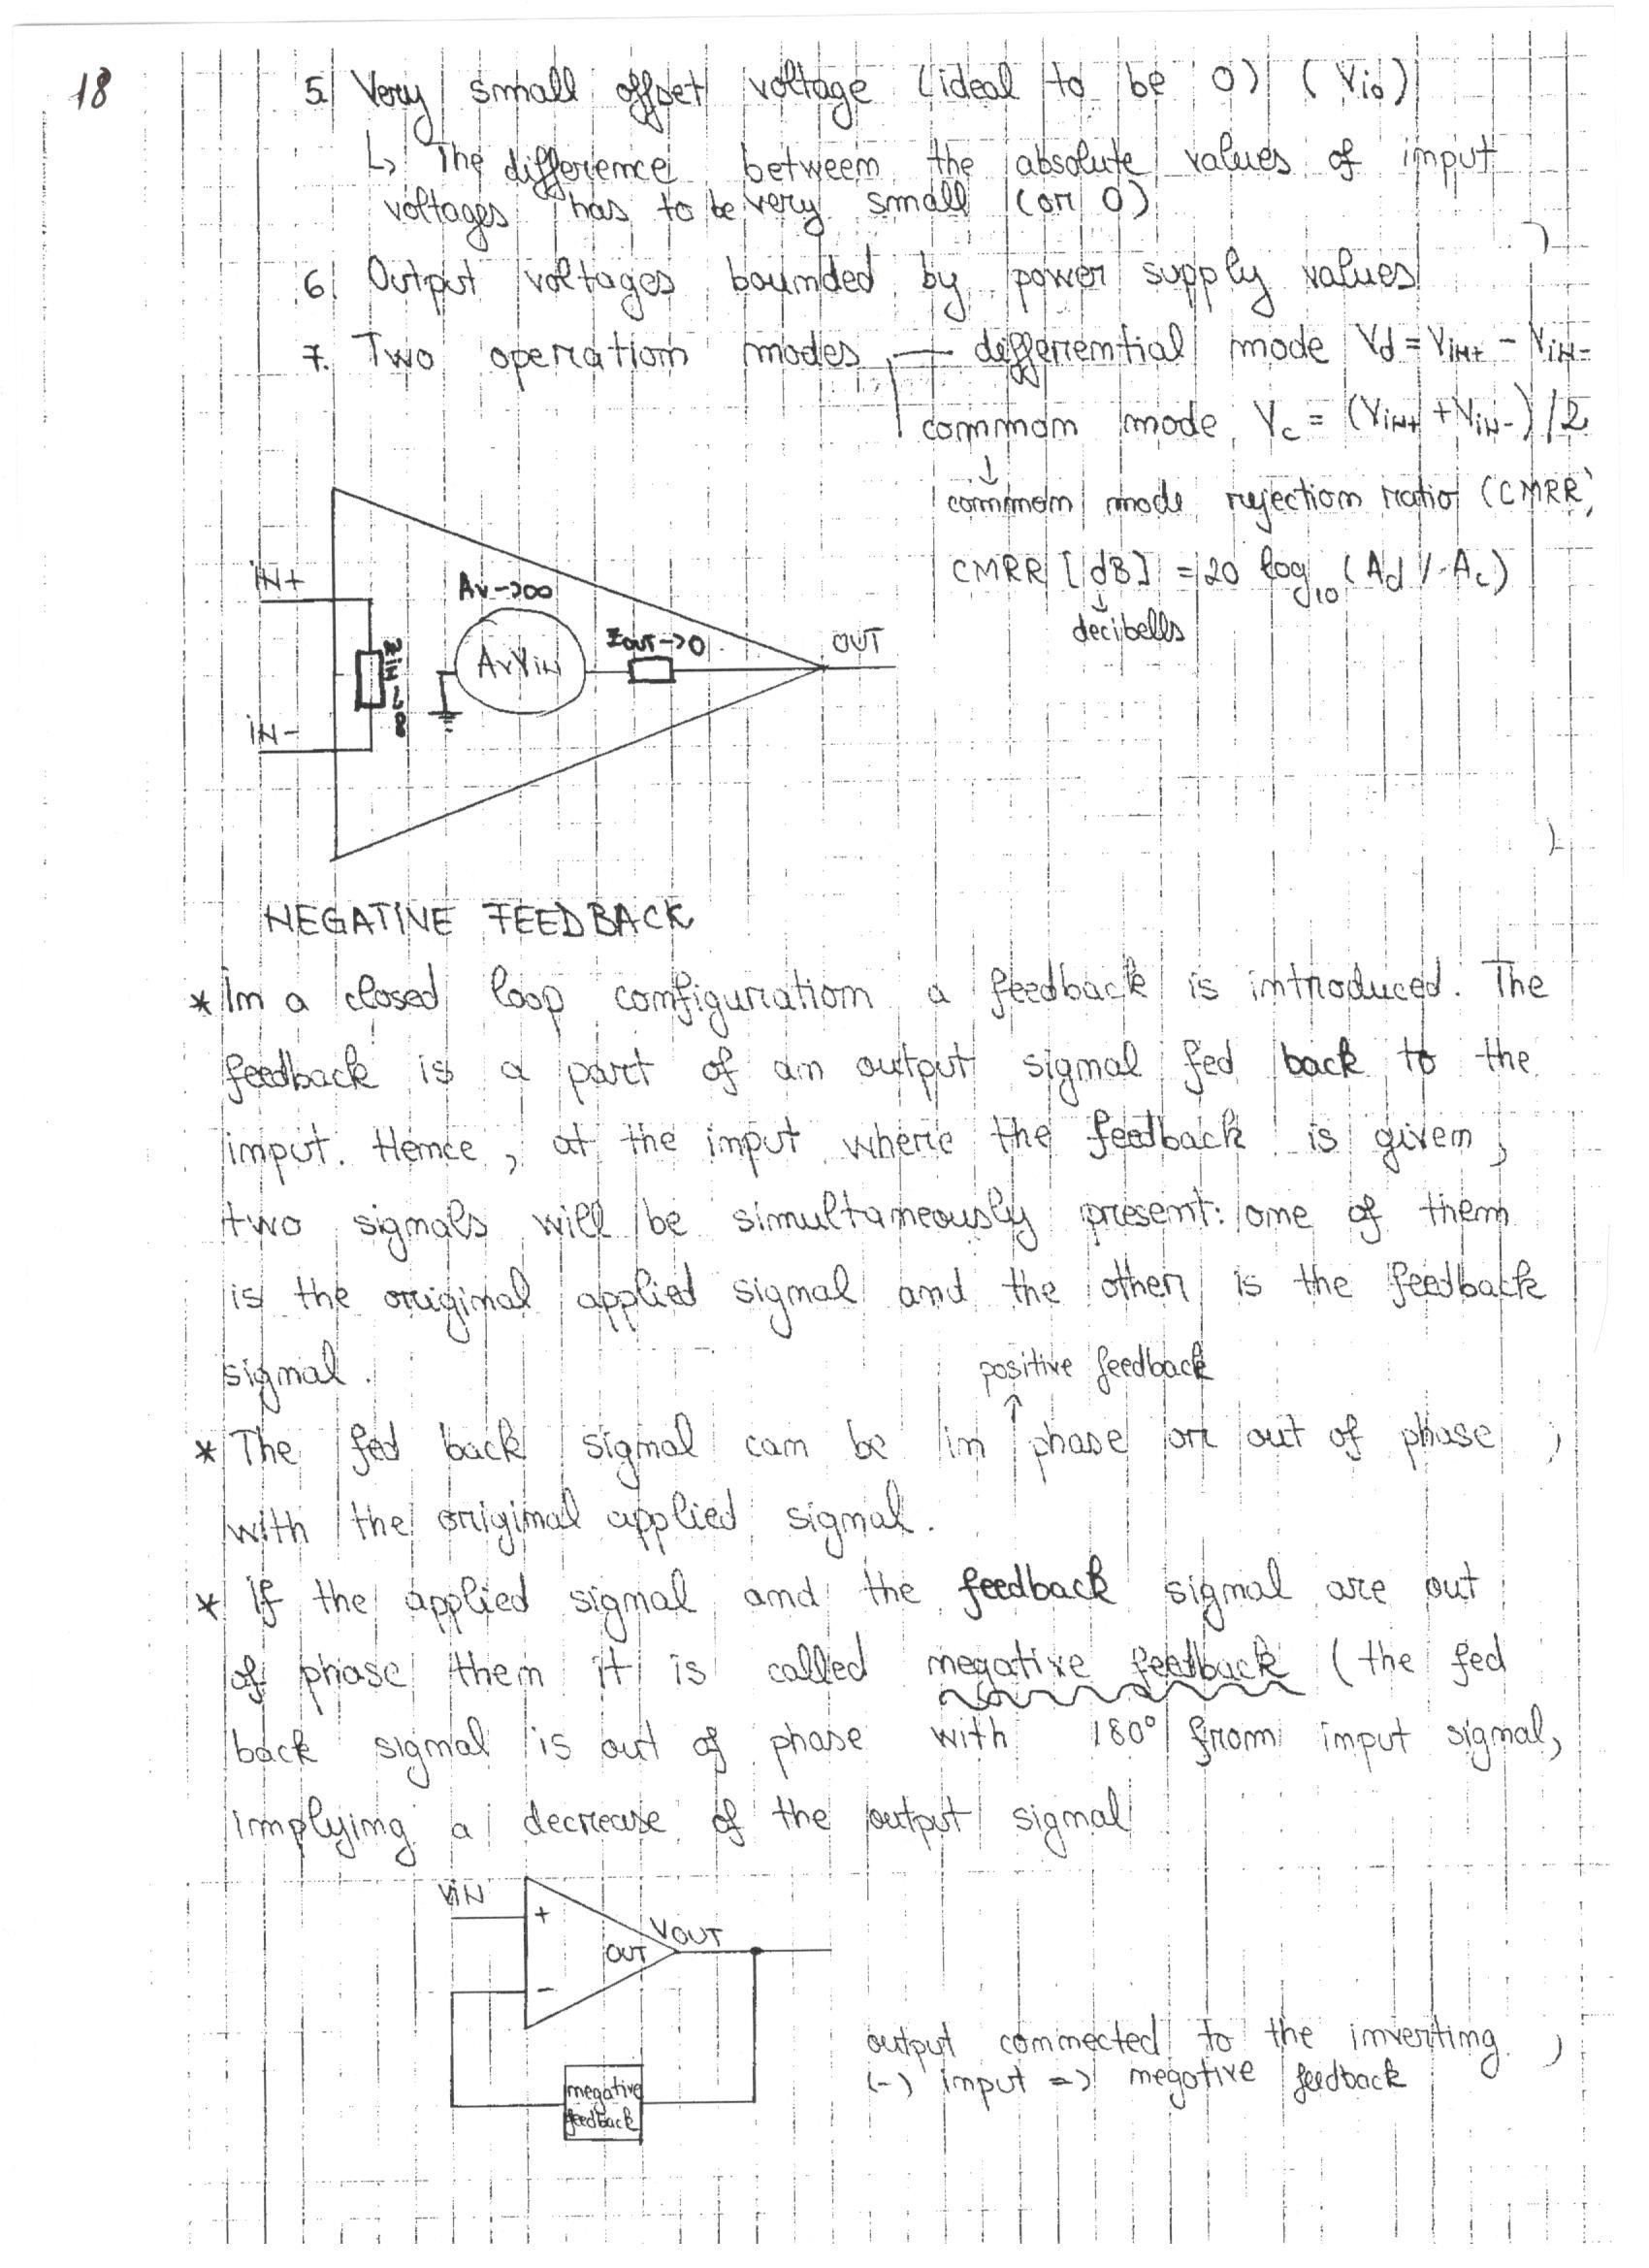 18
5. Very small offset voltage (ideal to be 0) (Vio)
↳ The difference between the absolute values of input
voltages has to be very small (or 0)
6. Output voltages bounded by power supply values
7. Two operation modes — differential mode Vd = ViN+ - ViN-
common mode Vc = (ViN+ + ViN-)/2
↓
common mode rejection ratio (CMRR)
CMRR [dB] = 20 log10 (Ad / Ac)
↓
decibells
iN+
Av→∞
AvViN
Zout→0
OUT
Zi→∞
iN-
NEGATIVE FEEDBACK
* In a closed loop configuration a feedback is introduced. The
feedback is a part of an output signal fed back to the
input. Hence, at the input where the feedback is given,
two signals will be simultaneously present: one of them
is the original applied signal and the other is the feedback
signal.
positive feedback
↑
* The fed back signal can be in phase or out of phase
with the original applied signal.
* If the applied signal and the feedback signal are out
of phase then it is called negative feedback (the fed
back signal is out of phase with 180° from input signal,
implying a decrease of the output signal
ViN
+
OUT
VOUT
-
negative
feedback
output connected to the inverting
(-) input => negative feedback